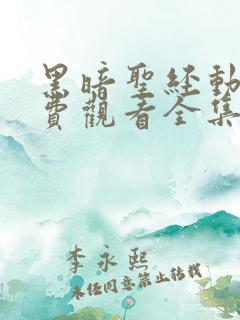 黑暗聖経動
費觀看全集
李永熙
未经同意禁止转载